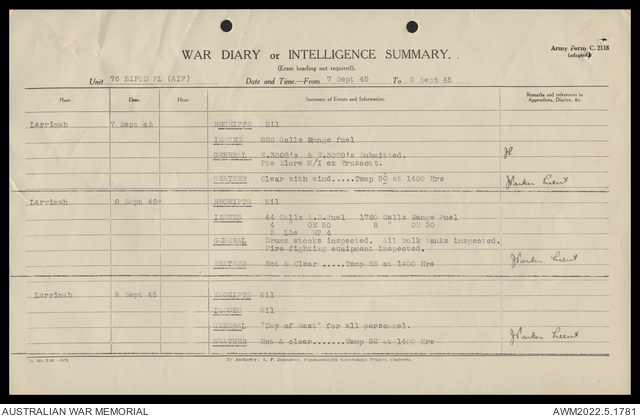 Army Form C. 2118
(adapted)
WAR DIARY or INTELLIGENCE SUMMARY.
(Erase heading not required).
Unit 76 BIPOD PL (AIF) Date and Time.—From 7 Sept 45 To 9 Sept 45
Place. Date. Hour. Summary of Events and Information. Remarks and references to Appendices, Diaries, &c.
Larrimah 7 Sept 45 RECEIPTS Nil
ISSUES 880 Galls Range fuel
GENERAL E.3008's & E.3009's Submitted.
Pte Slore M/I ex Truscott.
WEATHER Clear with wind.....Temp 90 at 1400 Hrs JParker Lieut
Larrimah 8 Sept 45 RECEIPTS Nil
ISSUES 44 Galls A.D.Fuel 1760 Galls Range Fuel
4 " OE 50 8 " OE 30
5 Lbs GP 4
GENERAL Drums stocks inspected. All bulk tanks inspected.
Fire fighting equipment inspected.
WEATHER Hot & Clear .....Temp 88 at 1400 Hrs JParker Lieut
Larrimah 9 Sept 45 RECEIPTS Nil
ISSUES Nil
GENERAL "Day of Rest" for all personnel.
WEATHER Hot & clear......Temp 92 at 1400 Hrs JParker Lieut
By Authority: L. F. Johnston, Commonwealth Government Printer, Canberra.
AUSTRALIAN WAR MEMORIAL AWM2022.5.1781